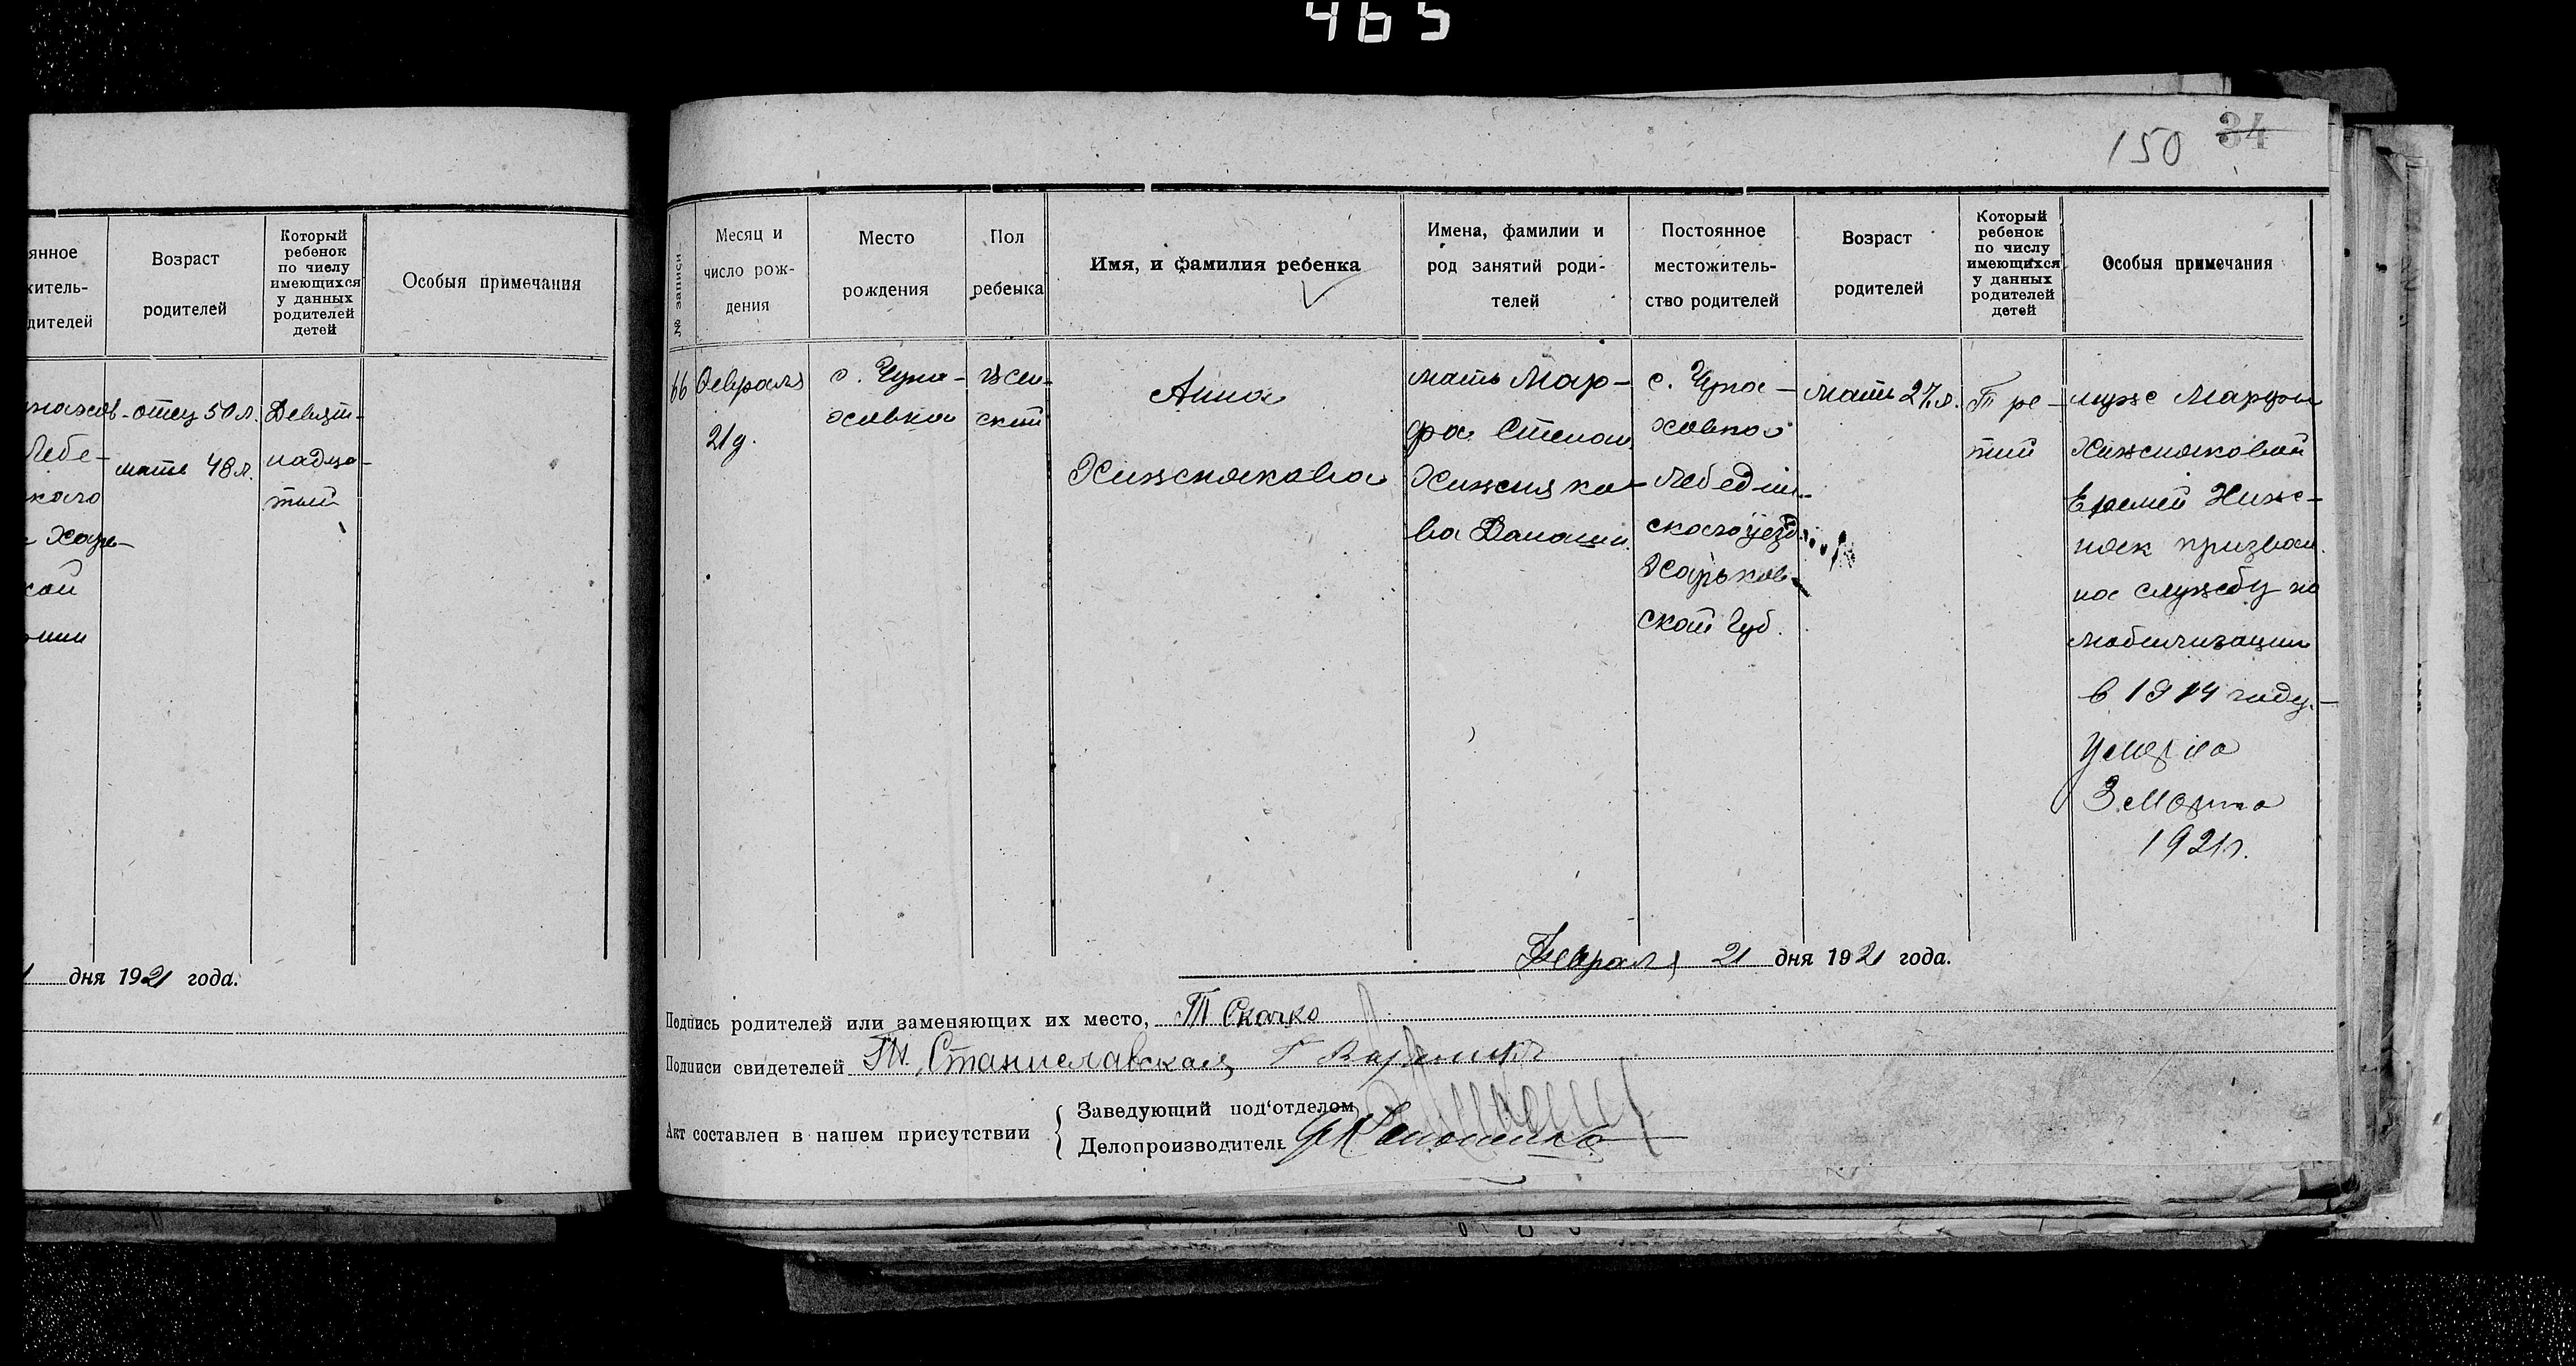 465
янное
житель-
дителей
Возраст
родителей
Который
ребенок
по числу
имеющихся
у данных
родителей
детей
Особыя примечания
отец 50 л.
Лебе-
мать 48 л.
Девят-
надца-
тый
каго
Харь-
кой
нии
дня 1921 года.
150 34
№ записи
Месяц и
число рож-
дения
Место
рождения
Пол
ребенка
Имя, и фамилия ребенка
Имена, фамилии и
род занятий роди-
телей
Постоянное
местожитель-
ство родителей
Возраст
родителей
Который
ребенок
по числу
имеющихся
у данных
родителей
детей
Особыя примечания
66
Февраля
21 д.
с. Чупа-
ховка
жен-
ский
Анна
Хижнякова
мать Мар-
фа Степан.
Хижняко-
ва
с. Чупа-
ховка
Лебедин-
скаго уезд.
Харьков-
ской Губ.
мать 27 л.
Тре-
тий
муж Марфы
Хижняковой
Еремей Хиж-
няк призван
на службу по
мобилизации
в 1914 году.-
Умерла
3 Марта
1921 г.
Февраля 21 дня 1921 года.
Подпись родителей или заменяющих их место, Т Скачко
Подписи свидетелей Т. Станиславская
Акт составлен в нашем присутствии
Заведующий под'отделом
Делопроизводитель